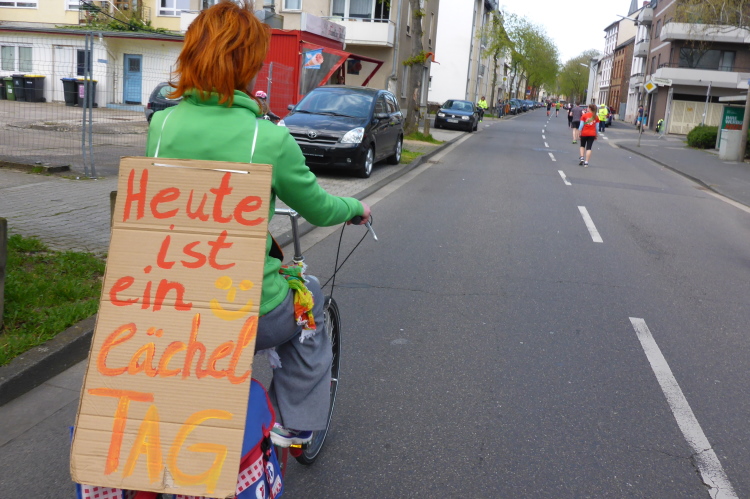 Heute
ist
ein
Lächel
TAG